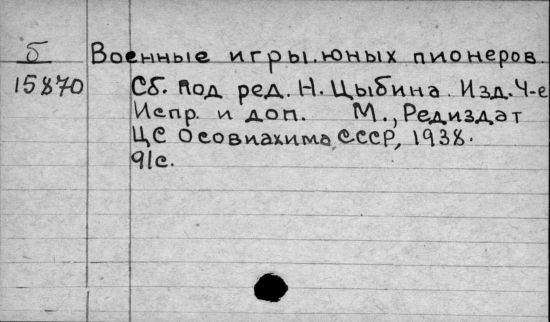 б Военные игры юных пионеров.
15870 Сб. под ред. Н. Цыбина. Изд. 4-е
Испр. и доп. М., Редиздат
ЦС Осовиахима СССР, 1938.
91с.